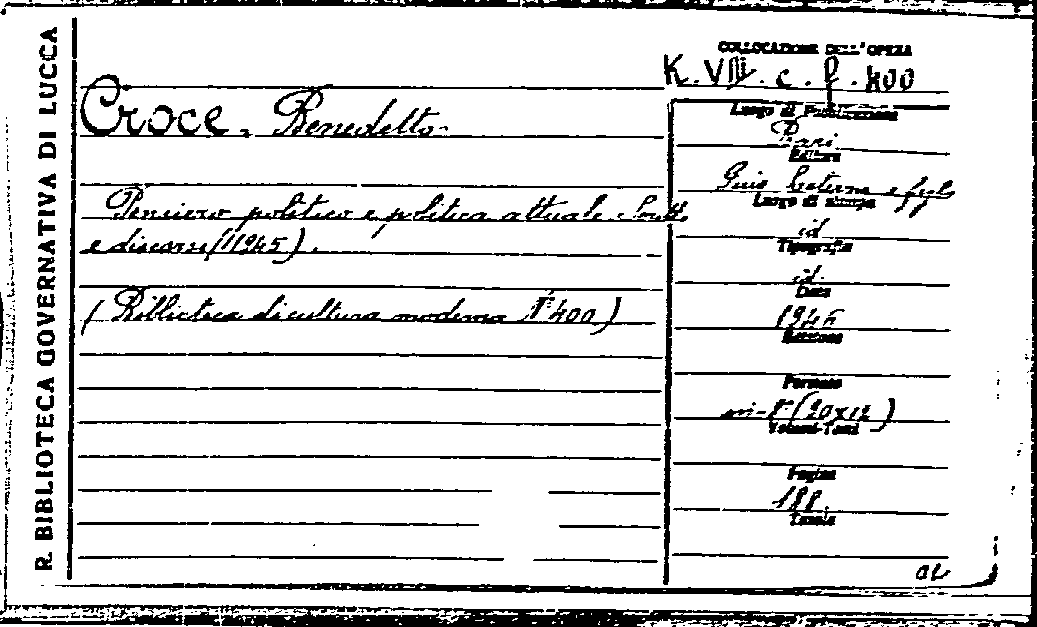 R. BIBLIOTECA GOVERNATIVA DI LUCCA
COLLOCAZIONE DELL'OPERA
K. VIII. c. f. 400
Croce, Benedetto.
Pensiero politico e politica attuale. Scritti
e discorsi (1945).
(Biblioteca di cultura moderna N° 400)
Luogo di Pubblicazione
Bari.
Editore
Gius. Laterza e figli
Luogo di stampa
id
Tipografia
id.
Data
1946
Edizione
Formato
in-8° (20x12)
Volumi-Tomi
Pagine
188.
Tavole